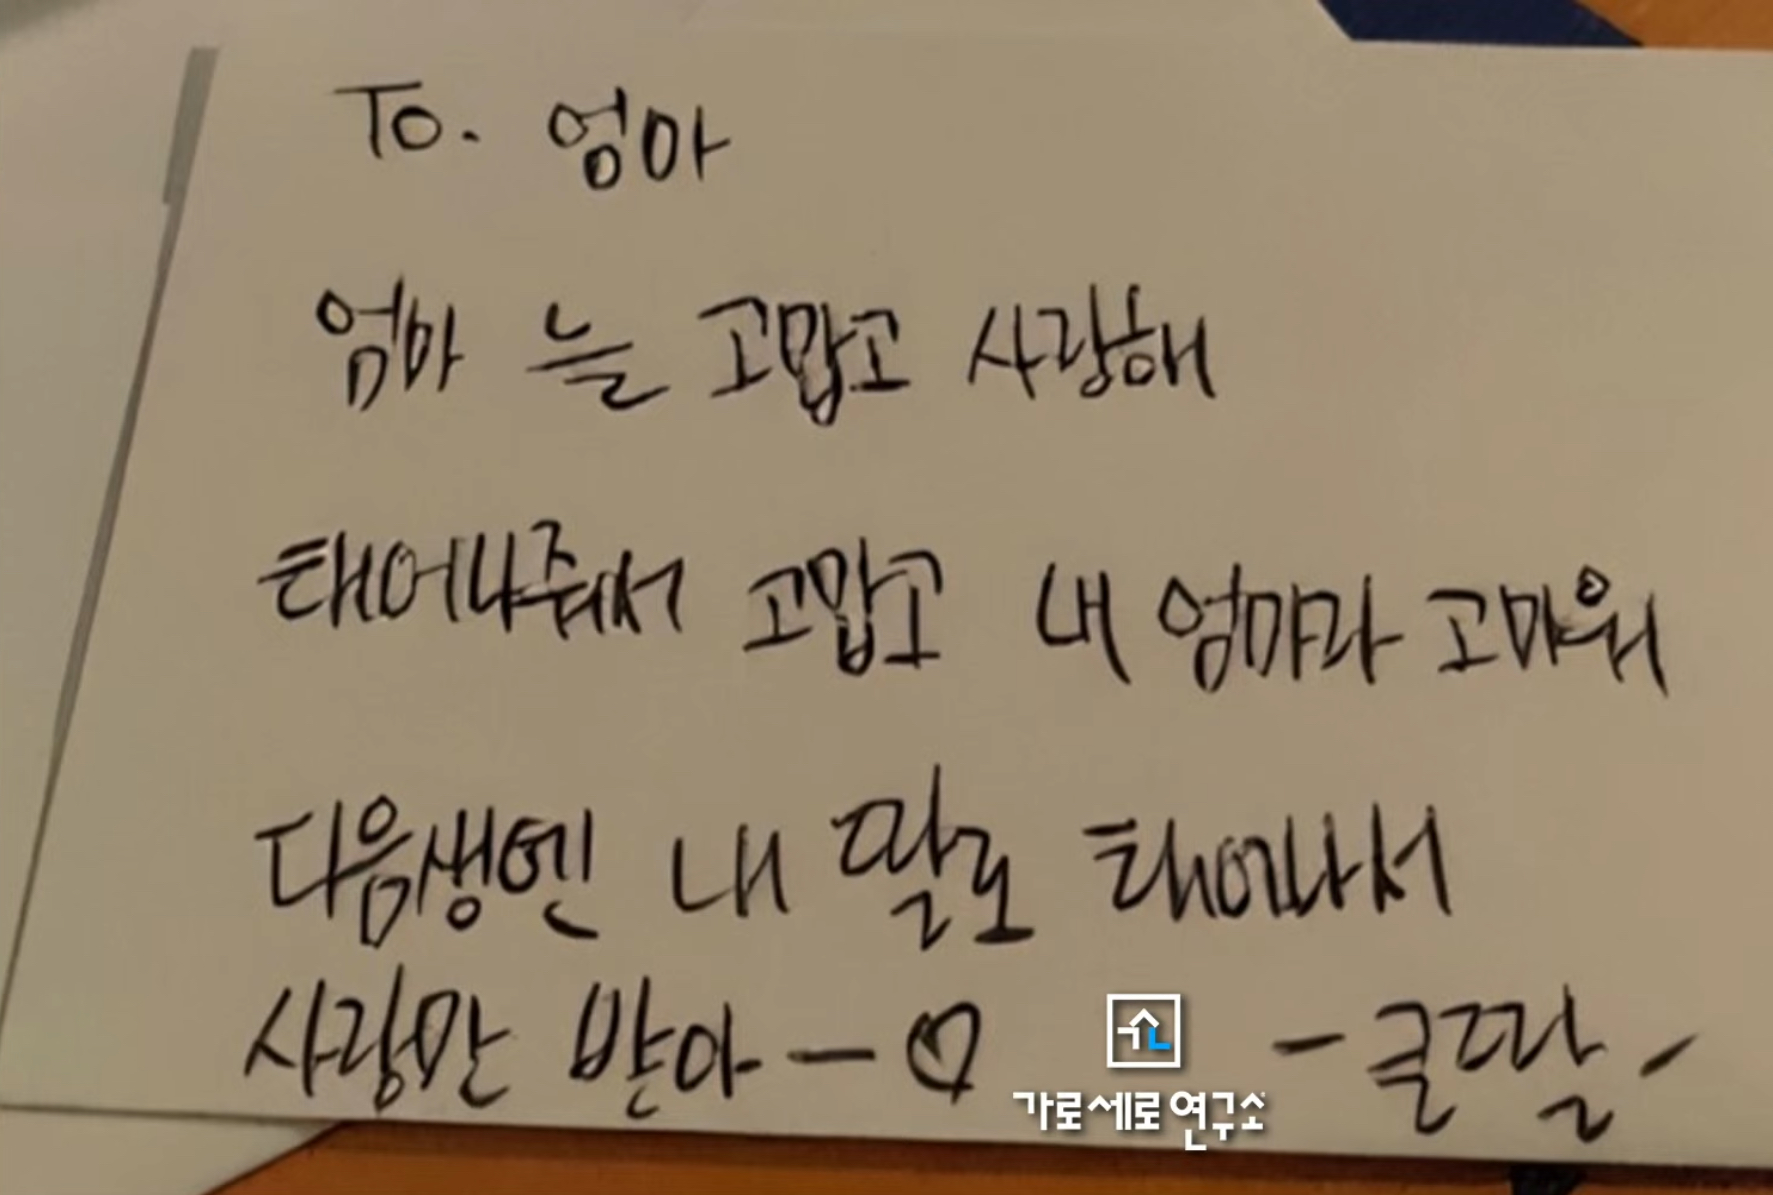 To. 엄마
엄마 늘 고맙고 사랑해
태어나줘서 고맙고 내 엄마라 고마워
다음생엔 내 딸로 태어나서
사랑만 받아-♡ -큰딸-
가로세로연구소